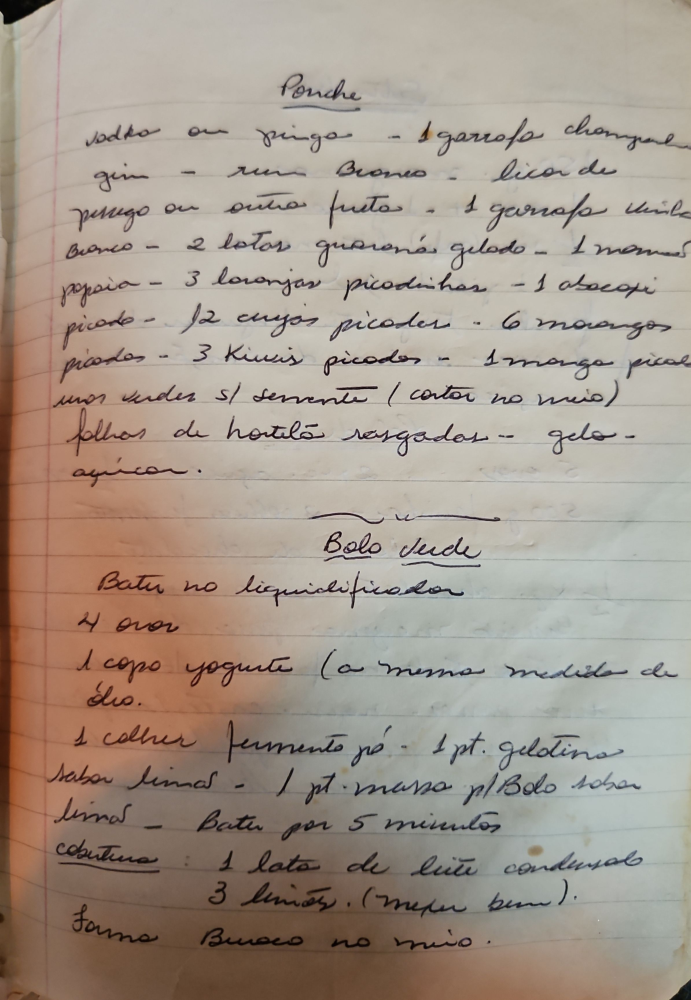 Ponche
vodka ou pinga - 1 garrafa champanh
gin - rum Branco - licor de
pessego ou outra fruta - 1 garrafa vinho
Branco - 2 latas guaraná gelado - 1 mamão
papaia - 3 laranjas picadinhas - 1 abacaxi
picado - /2 cerejas picadas - 6 morangos
picados - 3 Kiuis picados - 1 manga picad
uvas verdes s/ semente (cortar no meio)
folhas de hortelã rasgadas - gelo -
açúcar.
Bolo Verde
Bater no liquidificador
4 ovos
1 copo yogurte (a mesma medida de
óleo.
1 colher fermento pó - 1 pt. gelatina
sabor limão - 1 pt. massa p/ Bolo sabor
limão - Bater por 5 minutos
cobertura : 1 lata de leite condensado
3 limões. (mexer bem).
Forma Buraco no meio.